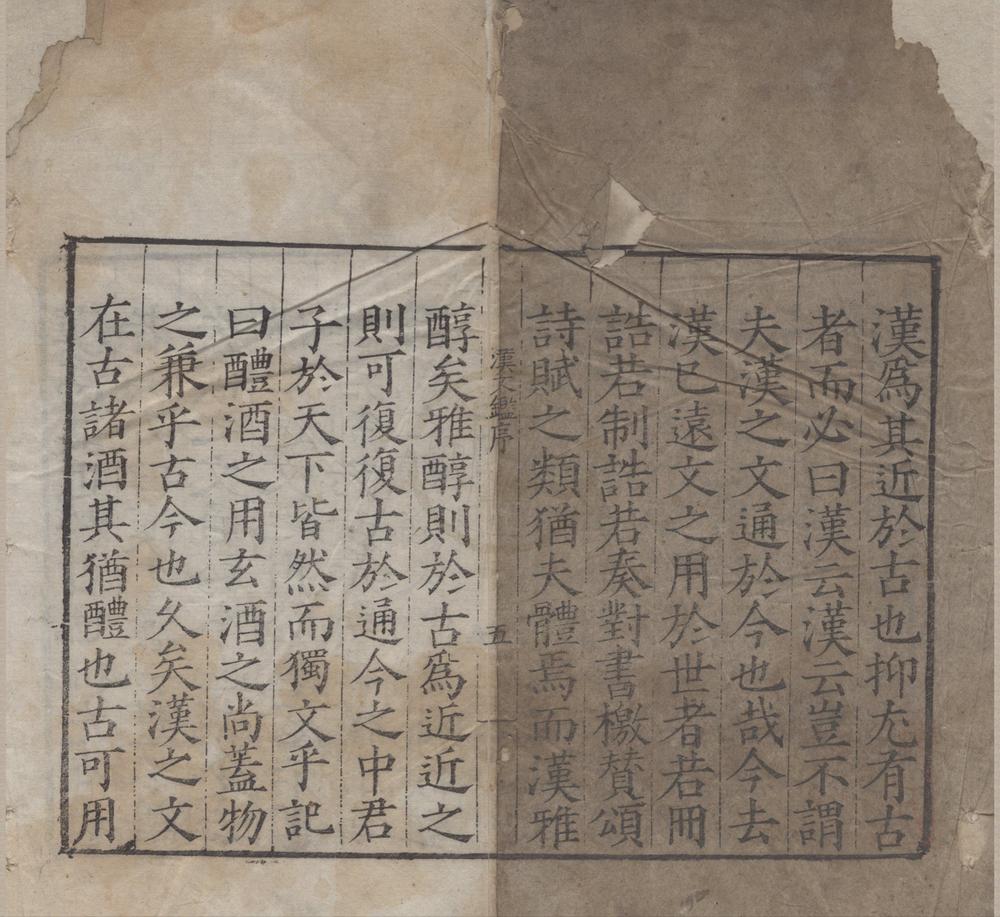 漢爲其近於古也抑尢有古
者而必曰漢云漢云豈不謂
夫漢之文通於今也哉今去
漢已遠文之用於世者若冊
誥若制誥若奏對書檄賛頌
詩賦之類猶夫體焉而漢雅
漢文鑑序
五
醇矣雅醇則於古爲近近之
則可復復古於通今之中君
子於天下皆然而獨文乎記
曰醴酒之用玄酒之尚蓋物
之兼乎古今也久矣漢之文
在古諸酒其猶醴也古可用